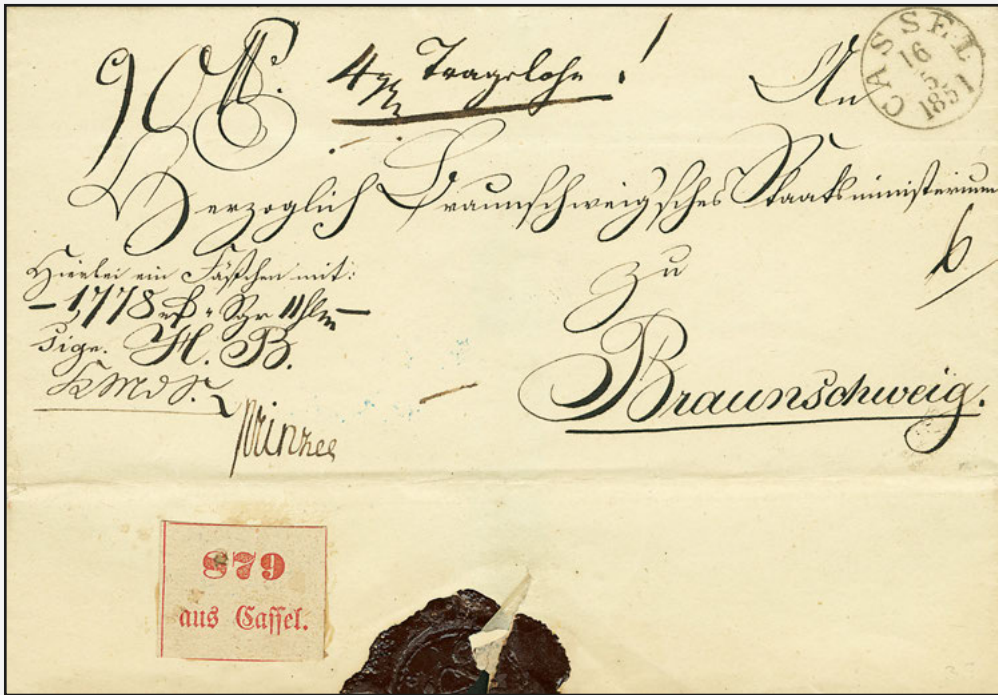 CASSEL
16
5
1851
90 ℔.
4 Tragelohn!
An
Herzoglich Braunschweig'sches Staatsministerium
zu
Braunschweig.
Hierbei ein Fäßchen mit:
— 1,778
Sign. H. B.
879
aus Cassel.